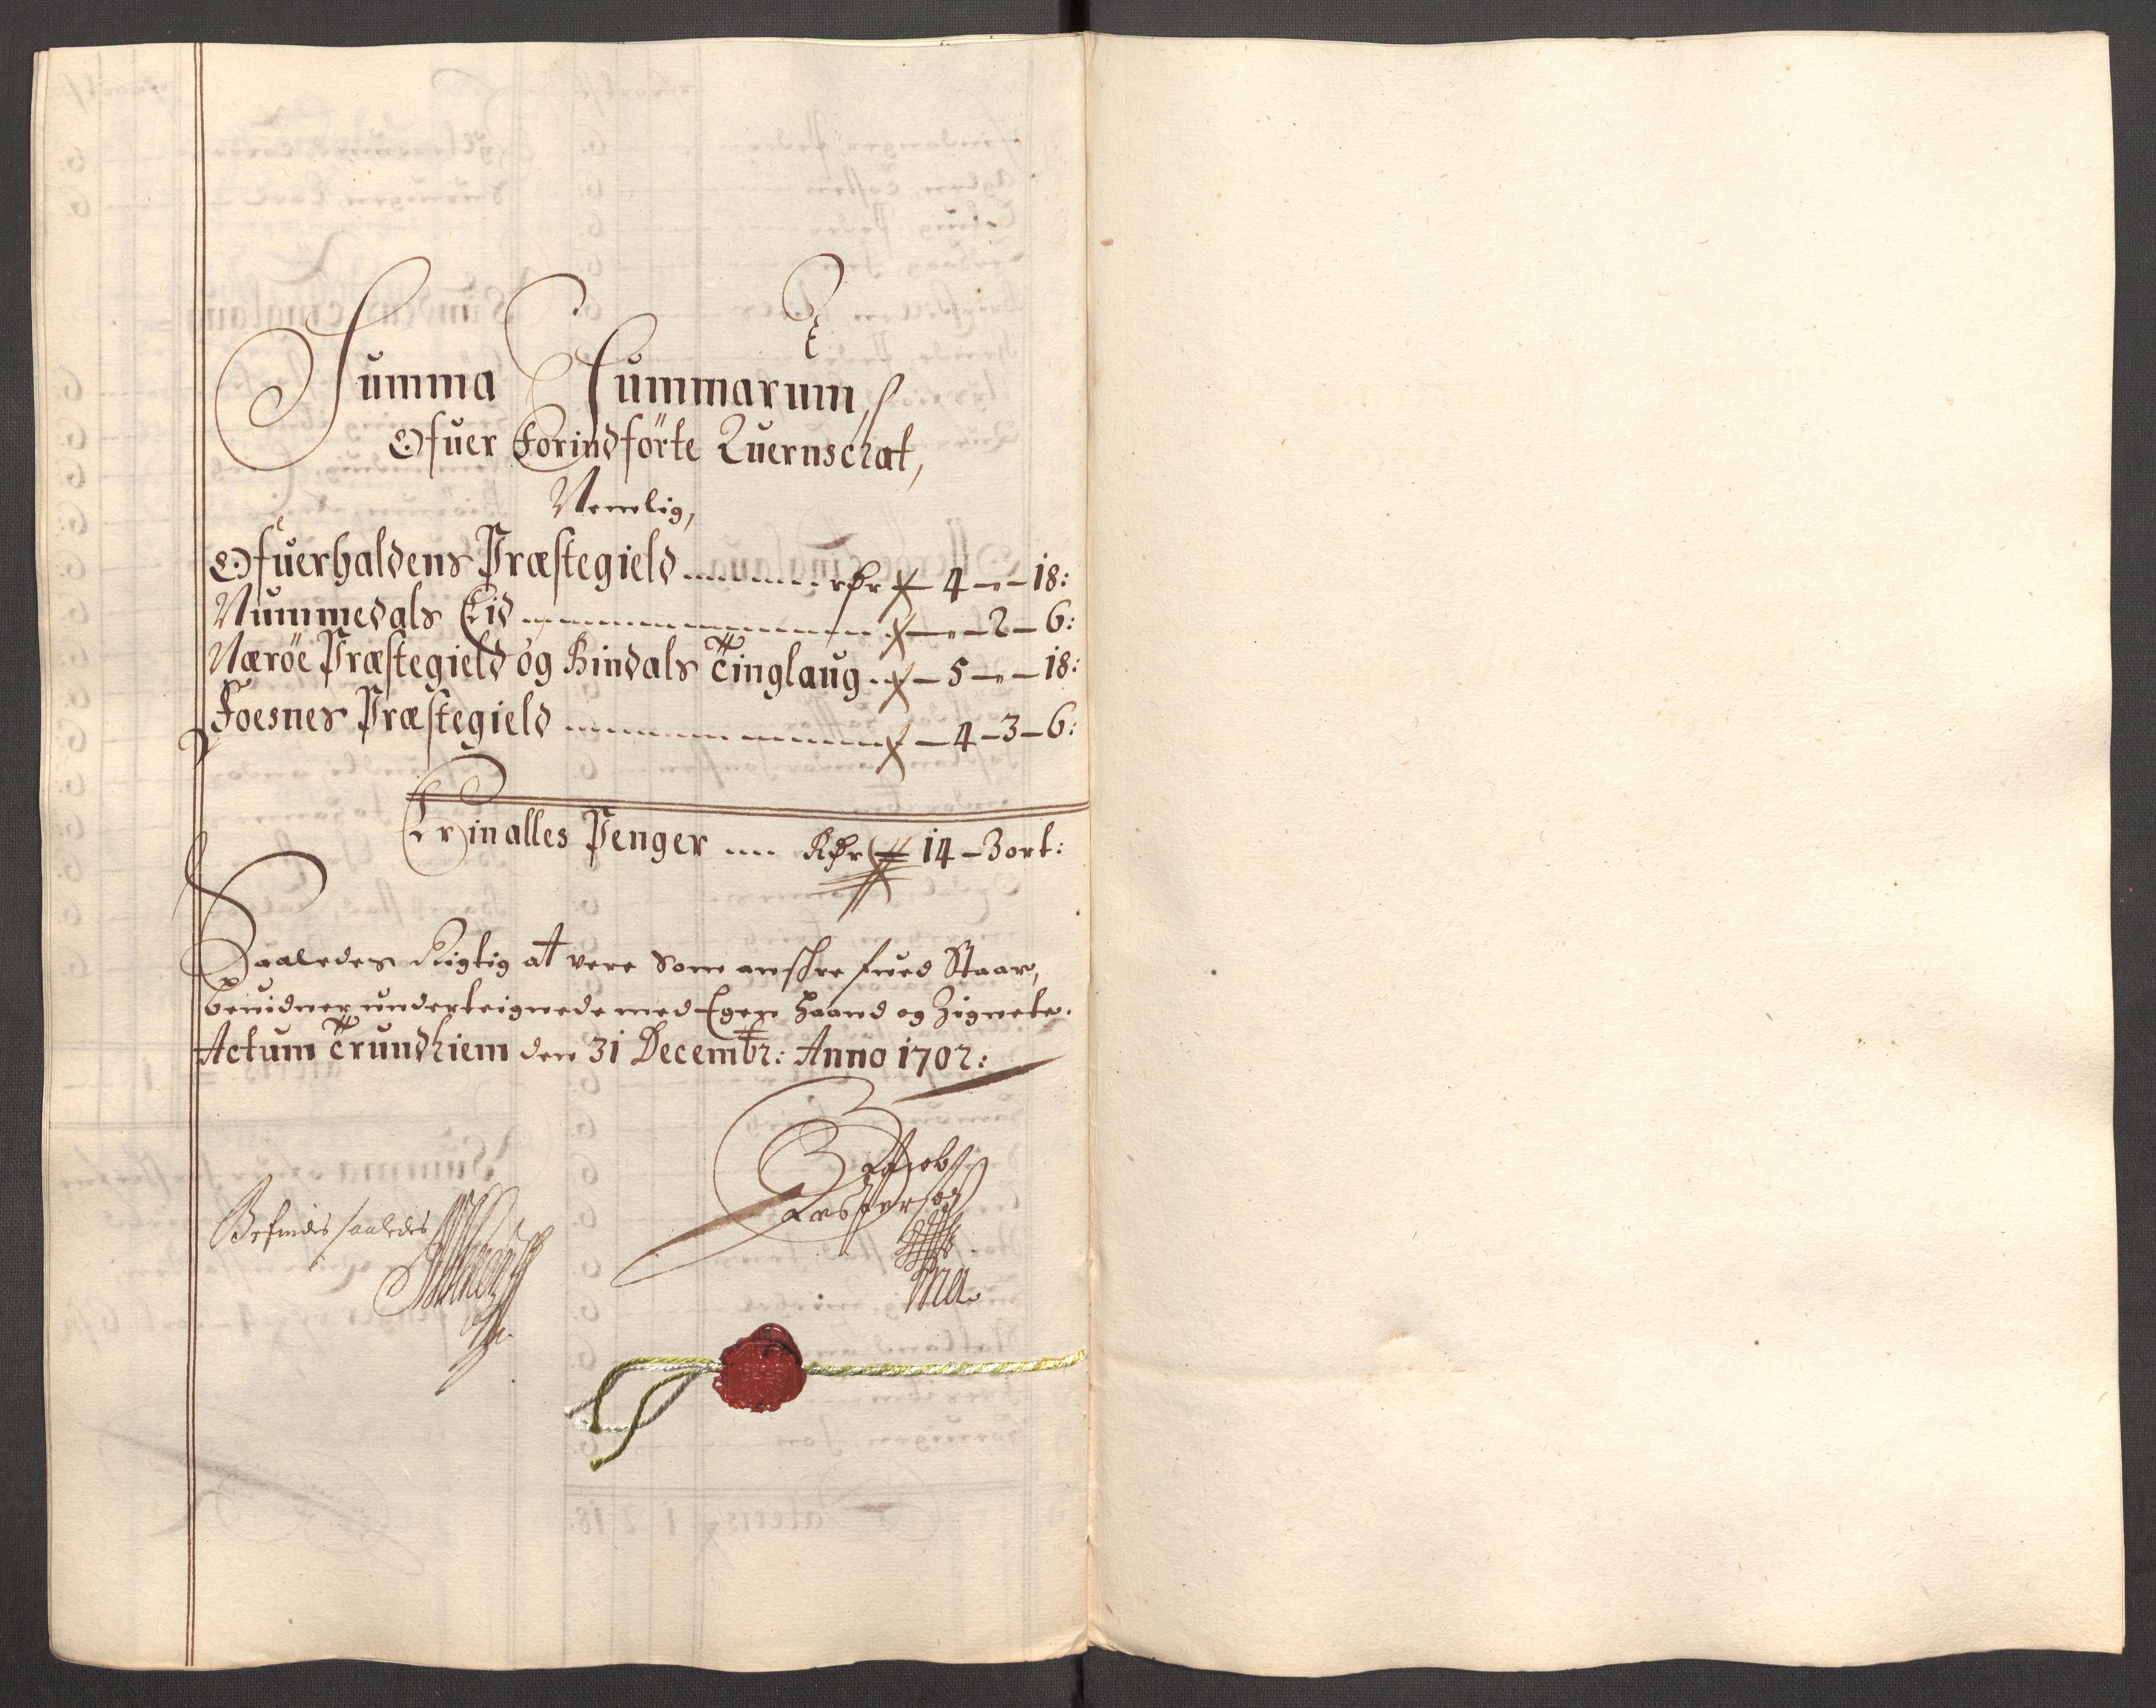 Summa Summarum,
Ofuer Forindförte Quernschat,
Nemlig,
Ofuerhaldens Præstegield ........ rdr 4 - " - 18:
Nummedals Eid ........ - " - 2 - 6:
Næröe Præstegield og Bindals Tinglaug .. - 5 - " - 18:
Foesnes Præstegield ........ - 4 - 3 - 6:
Er in alles Penger .... Rdr 14 - 3 ort:
Saaledes Rigtig at vere Som anschrefued Staar,
beuidner underteignede med Egen Haand og Zignete.
Actum Trundhiem den 31 Decembr: Anno 1702:
Befindis saaledis